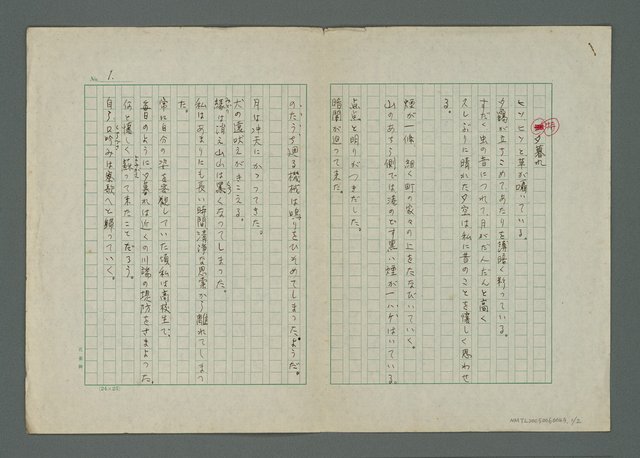 夕暮れ
ヒンヒンと草が囁いている。
夕靄が立ちこめて、あたりを薄暗く彩っている。
すだく虫の音につれて、月がだんだんと高く
久しぶりに晴れた夕空は私に昔のことを懐しく思わせ
る。
煙が一條、細く町の家々の上をたなびいていく。
山のあちら側では湊のです黒い煙が一ハケはいている。
点点と明りがつきだした。
暗闇が迫って来た。
No. 1.
のたうち廻る機械は鳴りをひそめてしまったようだ。
月は冲天にかかってきた。
犬の遠吠えがきこえる。
緑は消え山山は黒くなってしまった。
私はあまりにも長い時間清浄な思索から離れてしまっ
た。
常に自分の姿を客観していた頃私は高校生で、
毎日のように夕暮れは近くの川端の堤防をさまよった。
何と懐しく蘇って来たことだろう。
自ら口吟みは哀歌へと移っていく。
(25×25)
NMTL20050060069 1/2